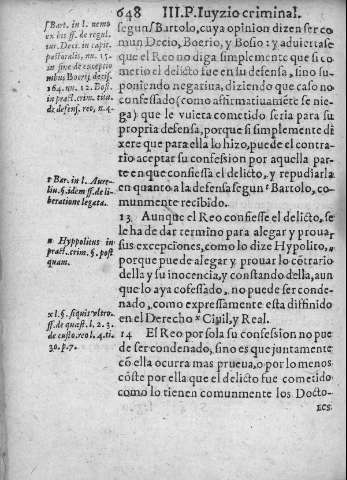 648 III.P. Iuyzio criminal.
segun ſ Bartolo, cuya opinion dizen ser co
mun Decio, Boerio, y Bosio: y aduiertase
que el Reo no diga simplemente que si co
metio el delicto fue en su defensa, sino su-
poniendo negatiua, diziendo que caso no
confessado (como affirmatiuamẽte se nie-
ga) que le vuieta cometido seria para su
propria defensa, porque si simplemente di
xere que para ella lo hizo, puede el contra-
rio aceptar su confession por aquella par-
te en que confiessa el delicto, y repudiarla
en quanto a la defensa segun t Bartolo, co-
munmente recibido.
13. Aunque el Reo confiesse el delicto, se
le ha de dar termino para alegar y prouar
sus excepciones, como lo dize Hypolito, u
porque puede alegar y prouar lo cõtrario
della y su inocencia, y constando della, aun
que lo aya cõfessado, no puede ser conde-
nado, como expressamente esta diffinido
en el Derecho x Ciuil, y Real.
14 El Reo por sola su confession no pue
de ser condenado, sino es que juntamente
cõ ella ocurra mas prueua, o por lo menos
cõste por ella que el delicto fue cometido
como lo tienen comunmente los Docto-
res.
ſ Bart. in l. nemo
ex bis ff. de regul.
iur. Deci. in capit.
pastoralis, nu. 15.
in fine de exceptio
nibus Boerij decis.
164. nu. 12. Bosi.
in pract. crim. titu.
de defens. reo, n. 4.
t Bar. in l. Aure-
lius. §. idem ff. de li-
beratione legata.
u Hyppolitus in
pract. crim. §. post
quam.
x l. §. si quis vltro.
ff. de quæst. l. 2. 3.
de custo. reo l. 4. ti.
30. p. 7.